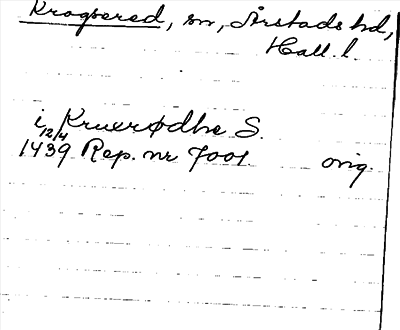 Krogsered, sn, Årstads hd,
Hall. l.
i Kruerødhe S.
12/4
1439 Rep. nr 7001 orig.